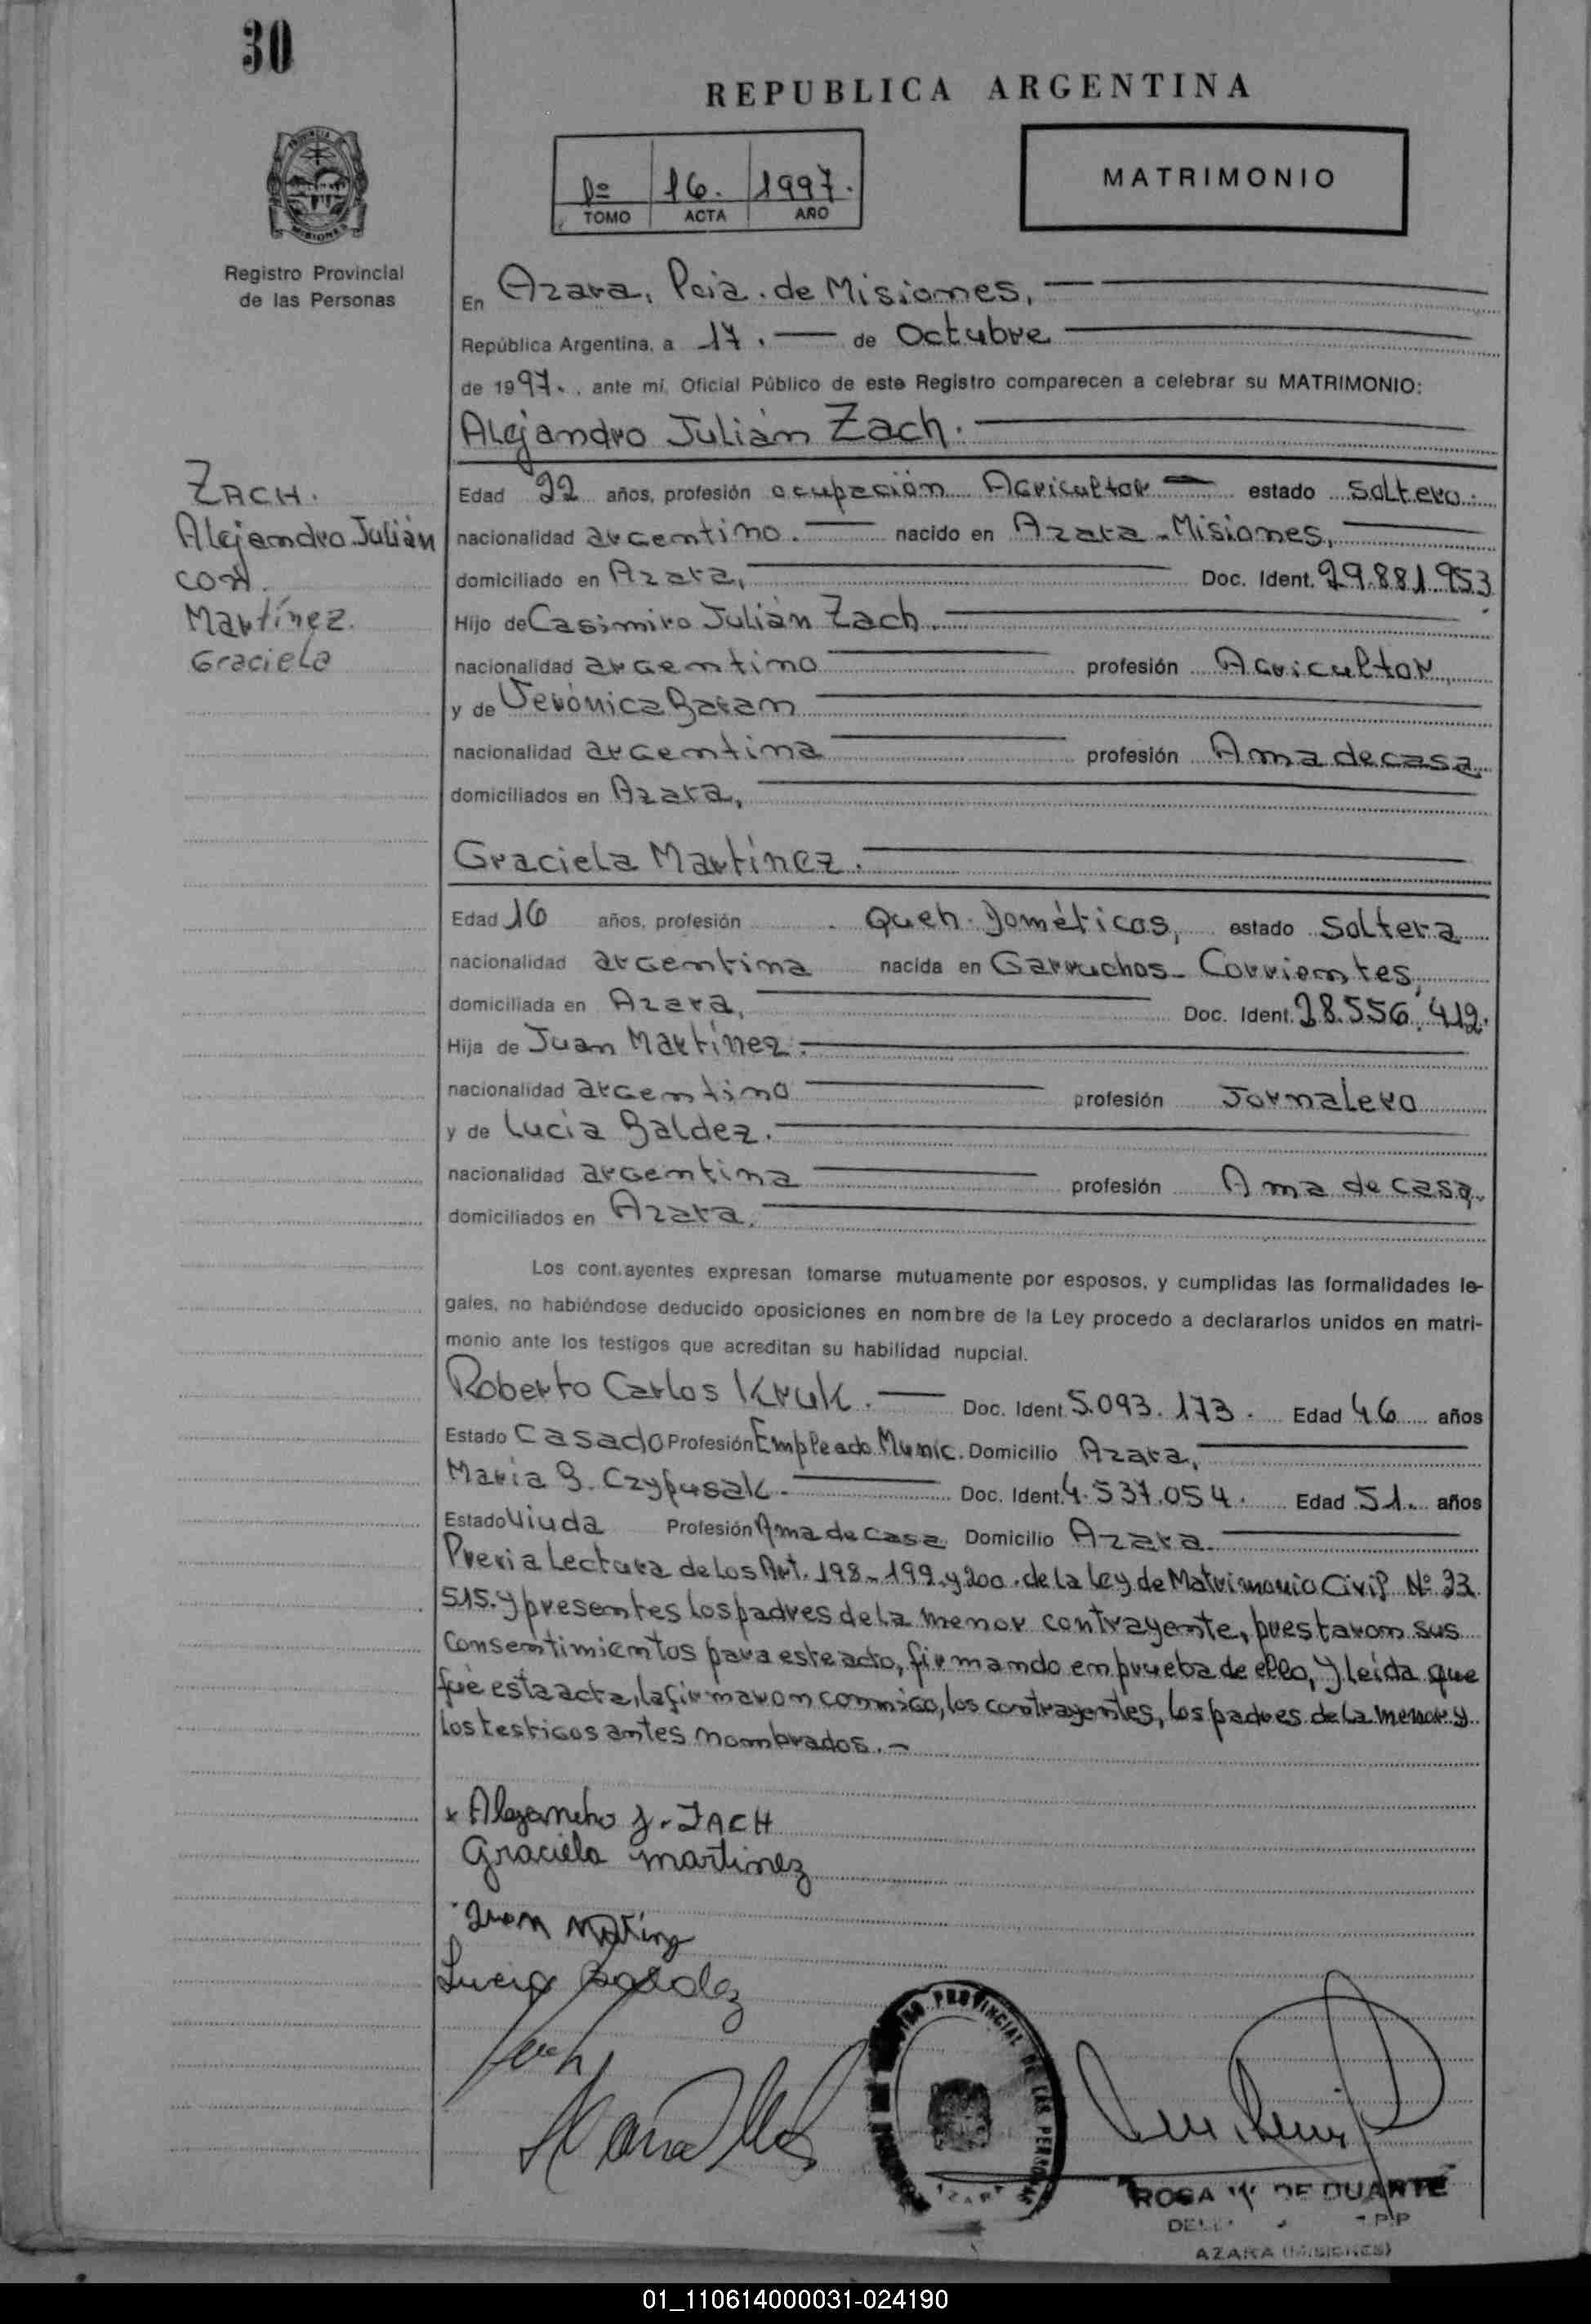 30
REPUBLICA ARGENTINA
1º 16. 1997.
TOMO ACTA AÑO
MATRIMONIO
PROVINCIA
MISIONES
Registro Provincial
de las Personas
En Azara, Pcia. de Misiones,
República Argentina, a 17. de Octubre
de 1997., ante mí, Oficial Público de este Registro comparecen a celebrar su MATRIMONIO:
Alejandro Julián Zach.
ZACH.
Alejandro Julián
con
Martínez.
Graciela
Edad 22 años, profesión ocupación Agricultor estado soltero.
nacionalidad argentino. nacido en Azara - Misiones,
domiciliado en Azara, Doc. Ident. 29.881.953
Hijo de Casimiro Julián Zach.
nacionalidad argentino profesión Agricultor
y de Verónica Baran
nacionalidad argentina profesión Ama de casa
domiciliados en Azara,
Graciela Martínez.
Edad 16 años, profesión Queh. Dométicos, estado soltera
nacionalidad argentina nacida en Garruchos - Corrientes,
domiciliada en Azara, Doc. Ident. 28.556.412.
Hija de Juan Martínez.
nacionalidad argentino profesión Jornalero
y de Lucía Baldez.
nacionalidad argentina profesión Ama de casa.
domiciliados en Azara.
Los contrayentes expresan tomarse mutuamente por esposos, y cumplidas las formalidades le-
gales, no habiéndose deducido oposiciones en nombre de la Ley procedo a declararlos unidos en matri-
monio ante los testigos que acreditan su habilidad nupcial.
Roberto Carlos Kruk. Doc. Ident. 5.093.173. Edad 46 años
Estado Casado Profesión Empleado Munic. Domicilio Azara,
María B. Doc. Ident. 4.537.054. Edad 51. años
Estado Viuda Profesión Ama de Casa Domicilio Azara.
Previa Lectura de los Art. 198 - 199 y 200. de la Ley de Matrimonio Civil Nº 23.
515. y presentes los padres de la menor contrayente, prestaron sus
Consentimientos para este acto, firmando en prueba de ello, y leída que
fué esta acta, la firmaron conmigo, los contrayentes, los padres de la menor y
los testigos antes nombrados.-
x Alejandro J. ZACH
Graciela martinez
Juan
Lucia Baldez
PROVINCIAL DE LAS PERSONAS
AZARA
ROSA M. DE DUARTE
AZARA (MISIONES)
01_110614000031-024190